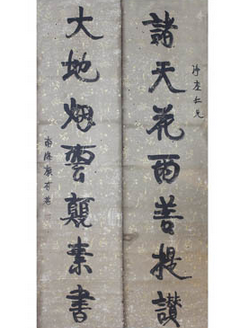 仁兄
諸天花雨善提讚
大地烟雲顛素書
南海康有為